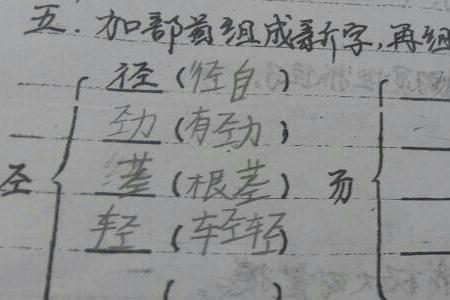 五．加部首组成新字,再组
径（径自）
劲（有劲）
茎（根茎）
圣
轻（车轻轻）
㐆